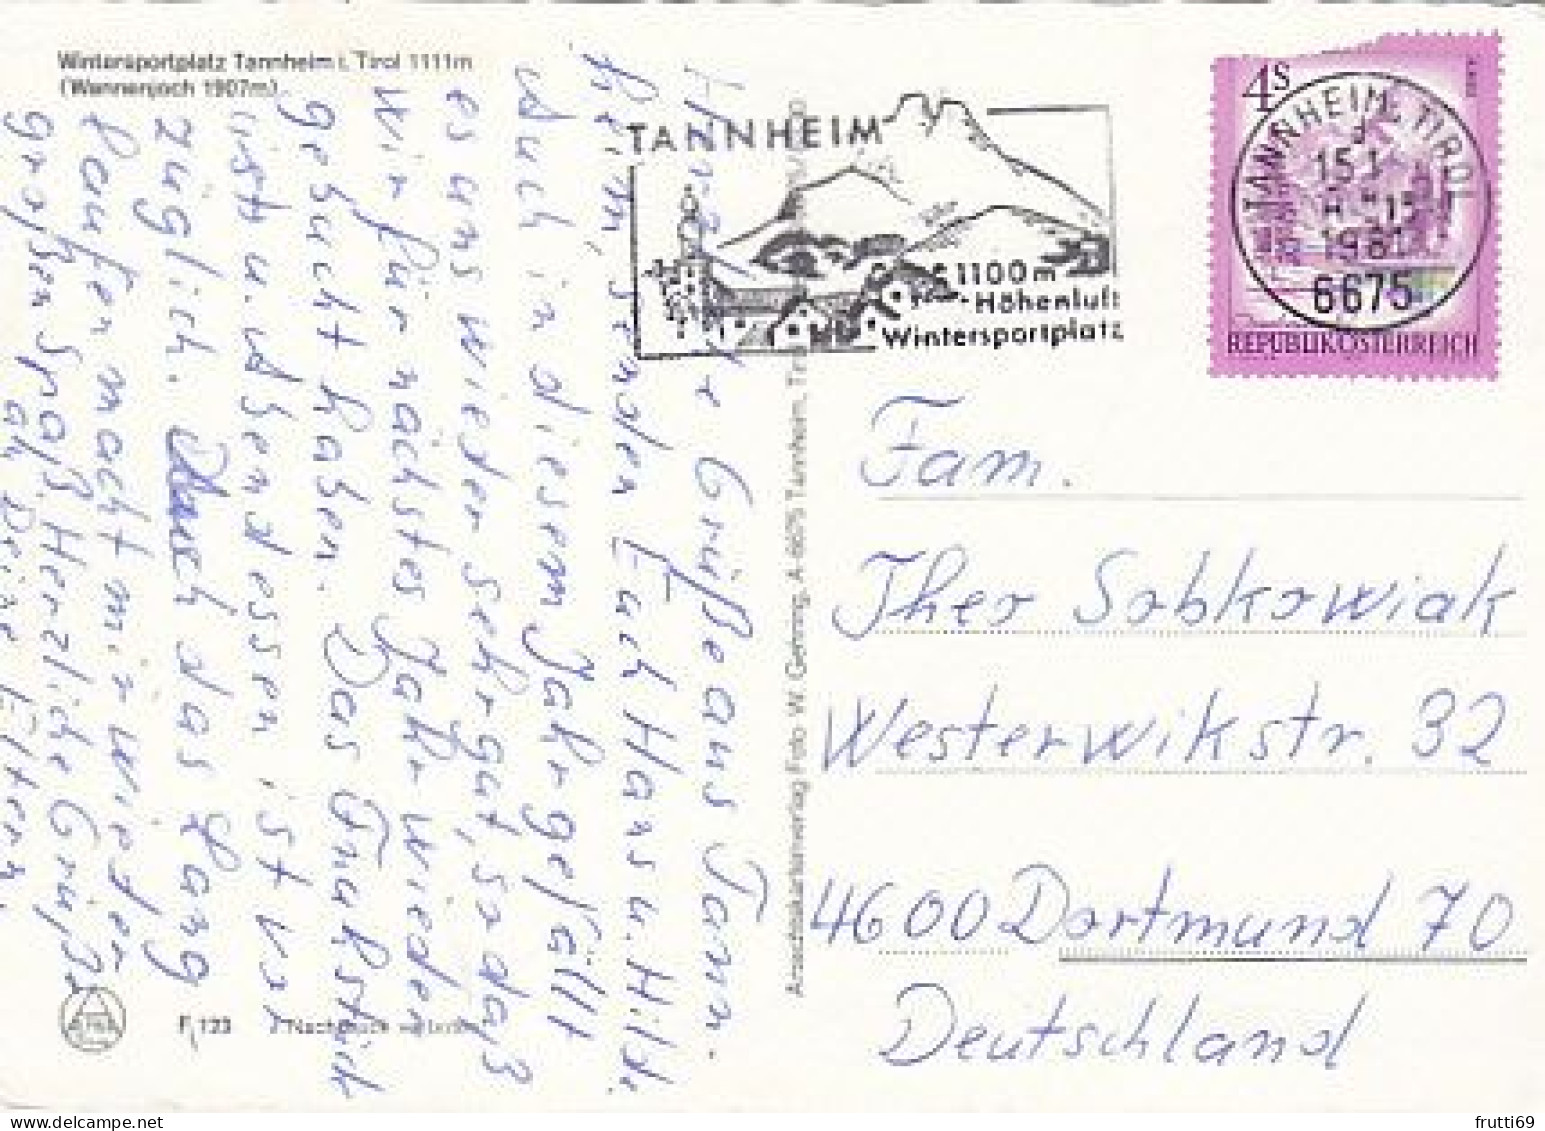 Wintersportplatz Tannheim i. Tirol 1111m
(Wannenjoch 1907m)
TANNHEIM
1100 m
Höhenluft
Wintersportplatz
4S
TANNHEIM, TIROL
6675
REPUBLIK ÖSTERREICH
Grüße aus Tann-
heim senden Euch Hans u. Hilde.
Auch in diesem Jahr gefällt
es uns wieder sehr gut, so daß
wir für nächstes Jahr wieder
gebucht haben. Das Frühstück
ist u. Abendessen ist vor
züglich. Auch das Lang
laufen macht mir wieder
großen Spaß. Herzliche Grüße
Eltern
Ansichtskartenverlag Foto W. Gehring, A-6675 Tannheim, Tirol
Fam.
Theo Sobkowiak
Westerwikstr. 32
4600 Dortmund 70
Deutschland
F 123 Nachdruck verboten
frutti69